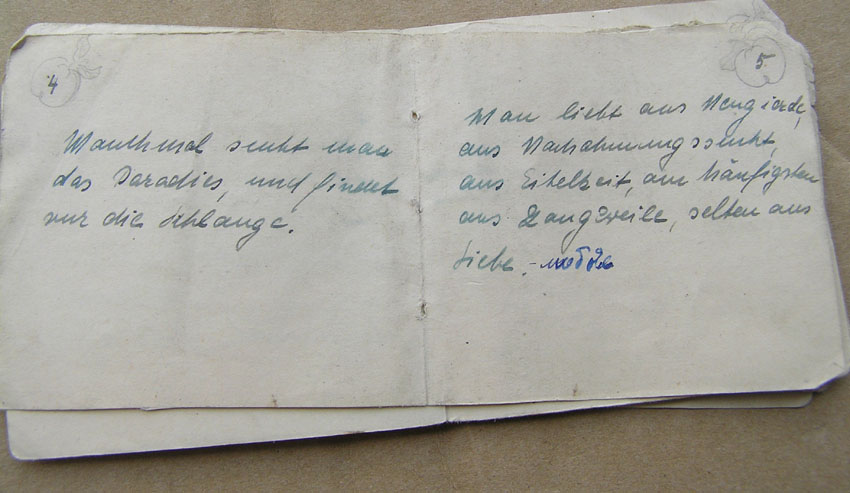 4
Manchmal sucht man
das Paradies, und findet
nur die Schlange.
5
Man liebt aus Neugierde,
aus Nachahmungssucht,
aus Eitelkeit, am häufigsten
aus Langeweile, selten aus
Liebe. -